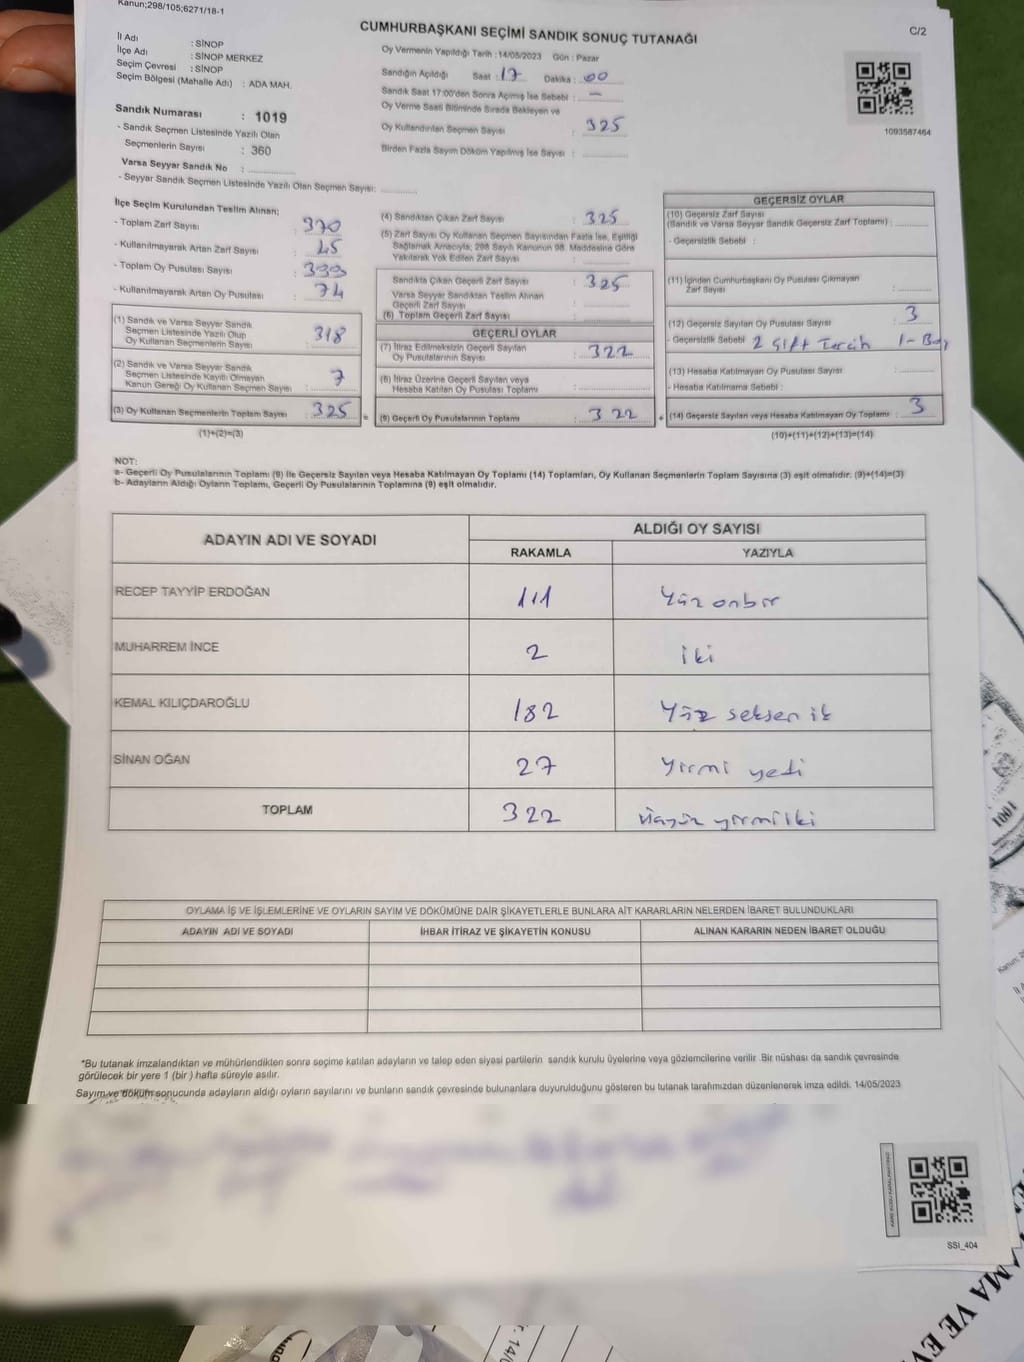 Kanun;298/105;6271/18-1
CUMHURBAŞKANI SEÇİMİ SANDIK SONUÇ TUTANAĞI
C/2
İl Adı : SİNOP
İlçe Adı : SİNOP MERKEZ
Seçim Çevresi : SİNOP
Seçim Bölgesi (Mahalle Adı) : ADA MAH.
Sandık Numarası : 1019
- Sandık Seçmen Listesinde Yazılı Olan
Seçmenlerin Sayısı : 360
Varsa Seyyar Sandık No :
- Seyyar Sandık Seçmen Listesinde Yazılı Olan Seçmen Sayısı:
Oy Vermenin Yapıldığı Tarih : 14/05/2023 Gün : Pazar
Sandığın Açıldığı Saat : 17 Dakika : 00
Sandık Saat 17:00'den Sonra Açılmış İse Sebebi : –
Oy Verme Saati Bitiminde Sırada Bekleyen ve
Oy Kullandırılan Seçmen Sayısı : 325
Birden Fazla Sayım Döküm Yapılmış İse Sayısı :
1093587464
İlçe Seçim Kurulundan Teslim Alınan;
- Toplam Zarf Sayısı : 370
- Kullanılmayarak Artan Zarf Sayısı : 45
- Toplam Oy Pusulası Sayısı :
- Kullanılmayarak Artan Oy Pusulası : 74
(1) Sandık ve Varsa Seyyar Sandık
Seçmen Listesinde Yazılı Olup
Oy Kullanan Seçmenlerin Sayısı : 318
(2) Sandık ve Varsa Seyyar Sandık
Seçmen Listesinde Kayıtlı Olmayan
Kanun Gereği Oy Kullanan Seçmen Sayısı : 7
(3) Oy Kullanan Seçmenlerin Toplam Sayısı : 325
(1)+(2)=(3)
(4) Sandıktan Çıkan Zarf Sayısı : 325
(5) Zarf Sayısı Oy Kullanan Seçmen Sayısından Fazla İse, Eşitliği
Sağlamak Amacıyla; 298 Sayılı Kanunun 98. Maddesine Göre
Yakılarak Yok Edilen Zarf Sayısı :
Sandıkta Çıkan Geçerli Zarf Sayısı : 325
Varsa Seyyar Sandıktan Teslim Alınan
Geçerli Zarf Sayısı :
(6) Toplam Geçerli Zarf Sayısı :
GEÇERLİ OYLAR
(7) İtiraz Edilmeksizin Geçerli Sayılan
Oy Pusulalarının Sayısı : 322
(8) İtiraz Üzerine Geçerli Sayılan veya
Hesaba Katılan Oy Pusulası Toplamı :
(9) Geçerli Oy Pusulalarının Toplamı : 322
GEÇERSİZ OYLAR
(10) Geçersiz Zarf Sayısı
(Sandık ve Varsa Seyyar Sandık Geçersiz Zarf Toplamı) :
- Geçersizlik Sebebi :
(11) İçinden Cumhurbaşkanı Oy Pusulası Çıkmayan
Zarf Sayısı :
(12) Geçersiz Sayılan Oy Pusulası Sayısı : 3
- Geçersizlik Sebebi 2 Çift Tercih 1-Boş
(13) Hesaba Katılmayan Oy Pusulası Sayısı :
- Hesaba Katılmama Sebebi :
(14) Geçersiz Sayılan veya Hesaba Katılmayan Oy Toplamı : 3
(10)+(11)+(12)+(13)=(14)
NOT:
a- Geçerli Oy Pusulalarının Toplamı (9) ile Geçersiz Sayılan veya Hesaba Katılmayan Oy Toplamı (14) Toplamları, Oy Kullanan Seçmenlerin Toplam Sayısına (3) eşit olmalıdır. (9)+(14)=(3)
b- Adayların Aldığı Oyların Toplamı, Geçerli Oy Pusulalarının Toplamına (9) eşit olmalıdır.
ADAYIN ADI VE SOYADI
ALDIĞI OY SAYISI
RAKAMLA YAZIYLA
RECEP TAYYİP ERDOĞAN 111 Yüz onbir
MUHARREM İNCE 2 iki
KEMAL KILIÇDAROĞLU 182 Yüz seksen ik
SİNAN OĞAN 27 yirmi yedi
TOPLAM 322 üçyüz yirmi iki
OYLAMA İŞ VE İŞLEMLERİNE VE OYLARIN SAYIM VE DÖKÜMÜNE DAİR ŞİKAYETLERLE BUNLARA AİT KARARLARIN NELERDEN İBARET BULUNDUKLARI
ADAYIN ADI VE SOYADI İHBAR İTİRAZ VE ŞİKAYETİN KONUSU ALINAN KARARIN NEDEN İBARET OLDUĞU
*Bu tutanak imzalandıktan ve mühürlendikten sonra seçime katılan adayların ve talep eden siyasi partilerin sandık kurulu üyelerine veya gözlemcilerine verilir .Bir nüshası da sandık çevresinde
görülecek bir yere 1 (bir ) hafta süreyle asılır.
Sayım ve döküm sonucunda adayların aldığı oyların sayılarını ve bunların sandık çevresinde bulunanlara duyurulduğunu gösteren bu tutanak tarafımızdan düzenlenerek imza edildi. 14/05/2023
SSI_404
1001
AMA VE EV